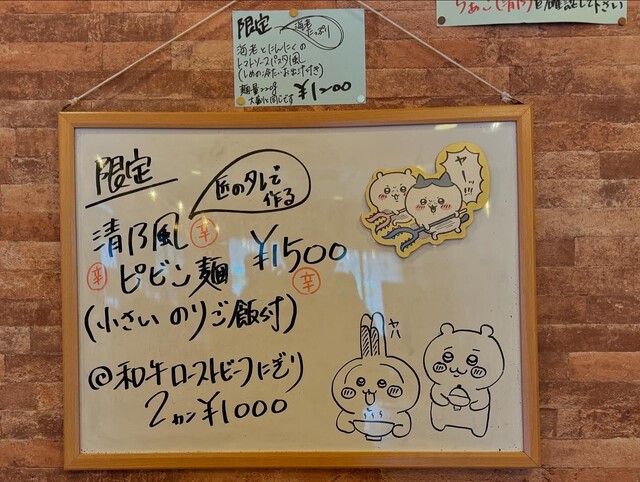 限定
海老たっぷり
海老とにんにくの
トマトソースパスタ風
(しめの冷たいお出汁付き)
麺量220g
大盛と同じです
限定
匠のタレで
作る
清乃風 辛
辛 ピビン麺
¥1500
辛
(小さい のりご飯付)
@和牛ローストビーフにぎり
2カン¥1000
ヤーッ!!!
ヤハ